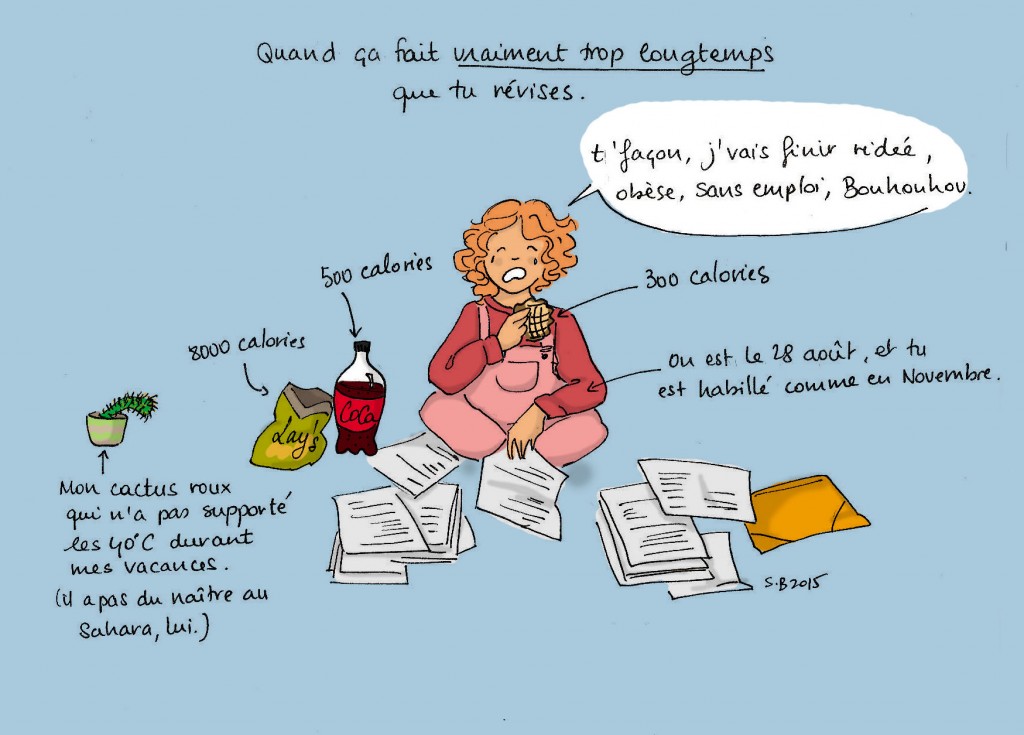 Quand ça fait vraiment trop longtemps
que tu révises.
t'façon, j'vais finir ridée,
obèse, sans emploi, Bouhouhou.
500 calories
300 calories
8000 calories
On est le 28 août, et tu
est habillé comme en Novembre.
Lay's
CoCa
Mon cactus roux
qui n'a pas supporté
les 40°C durant
mes vacances.
(il a pas du naître au
Sahara, lui.)
S.B 2015